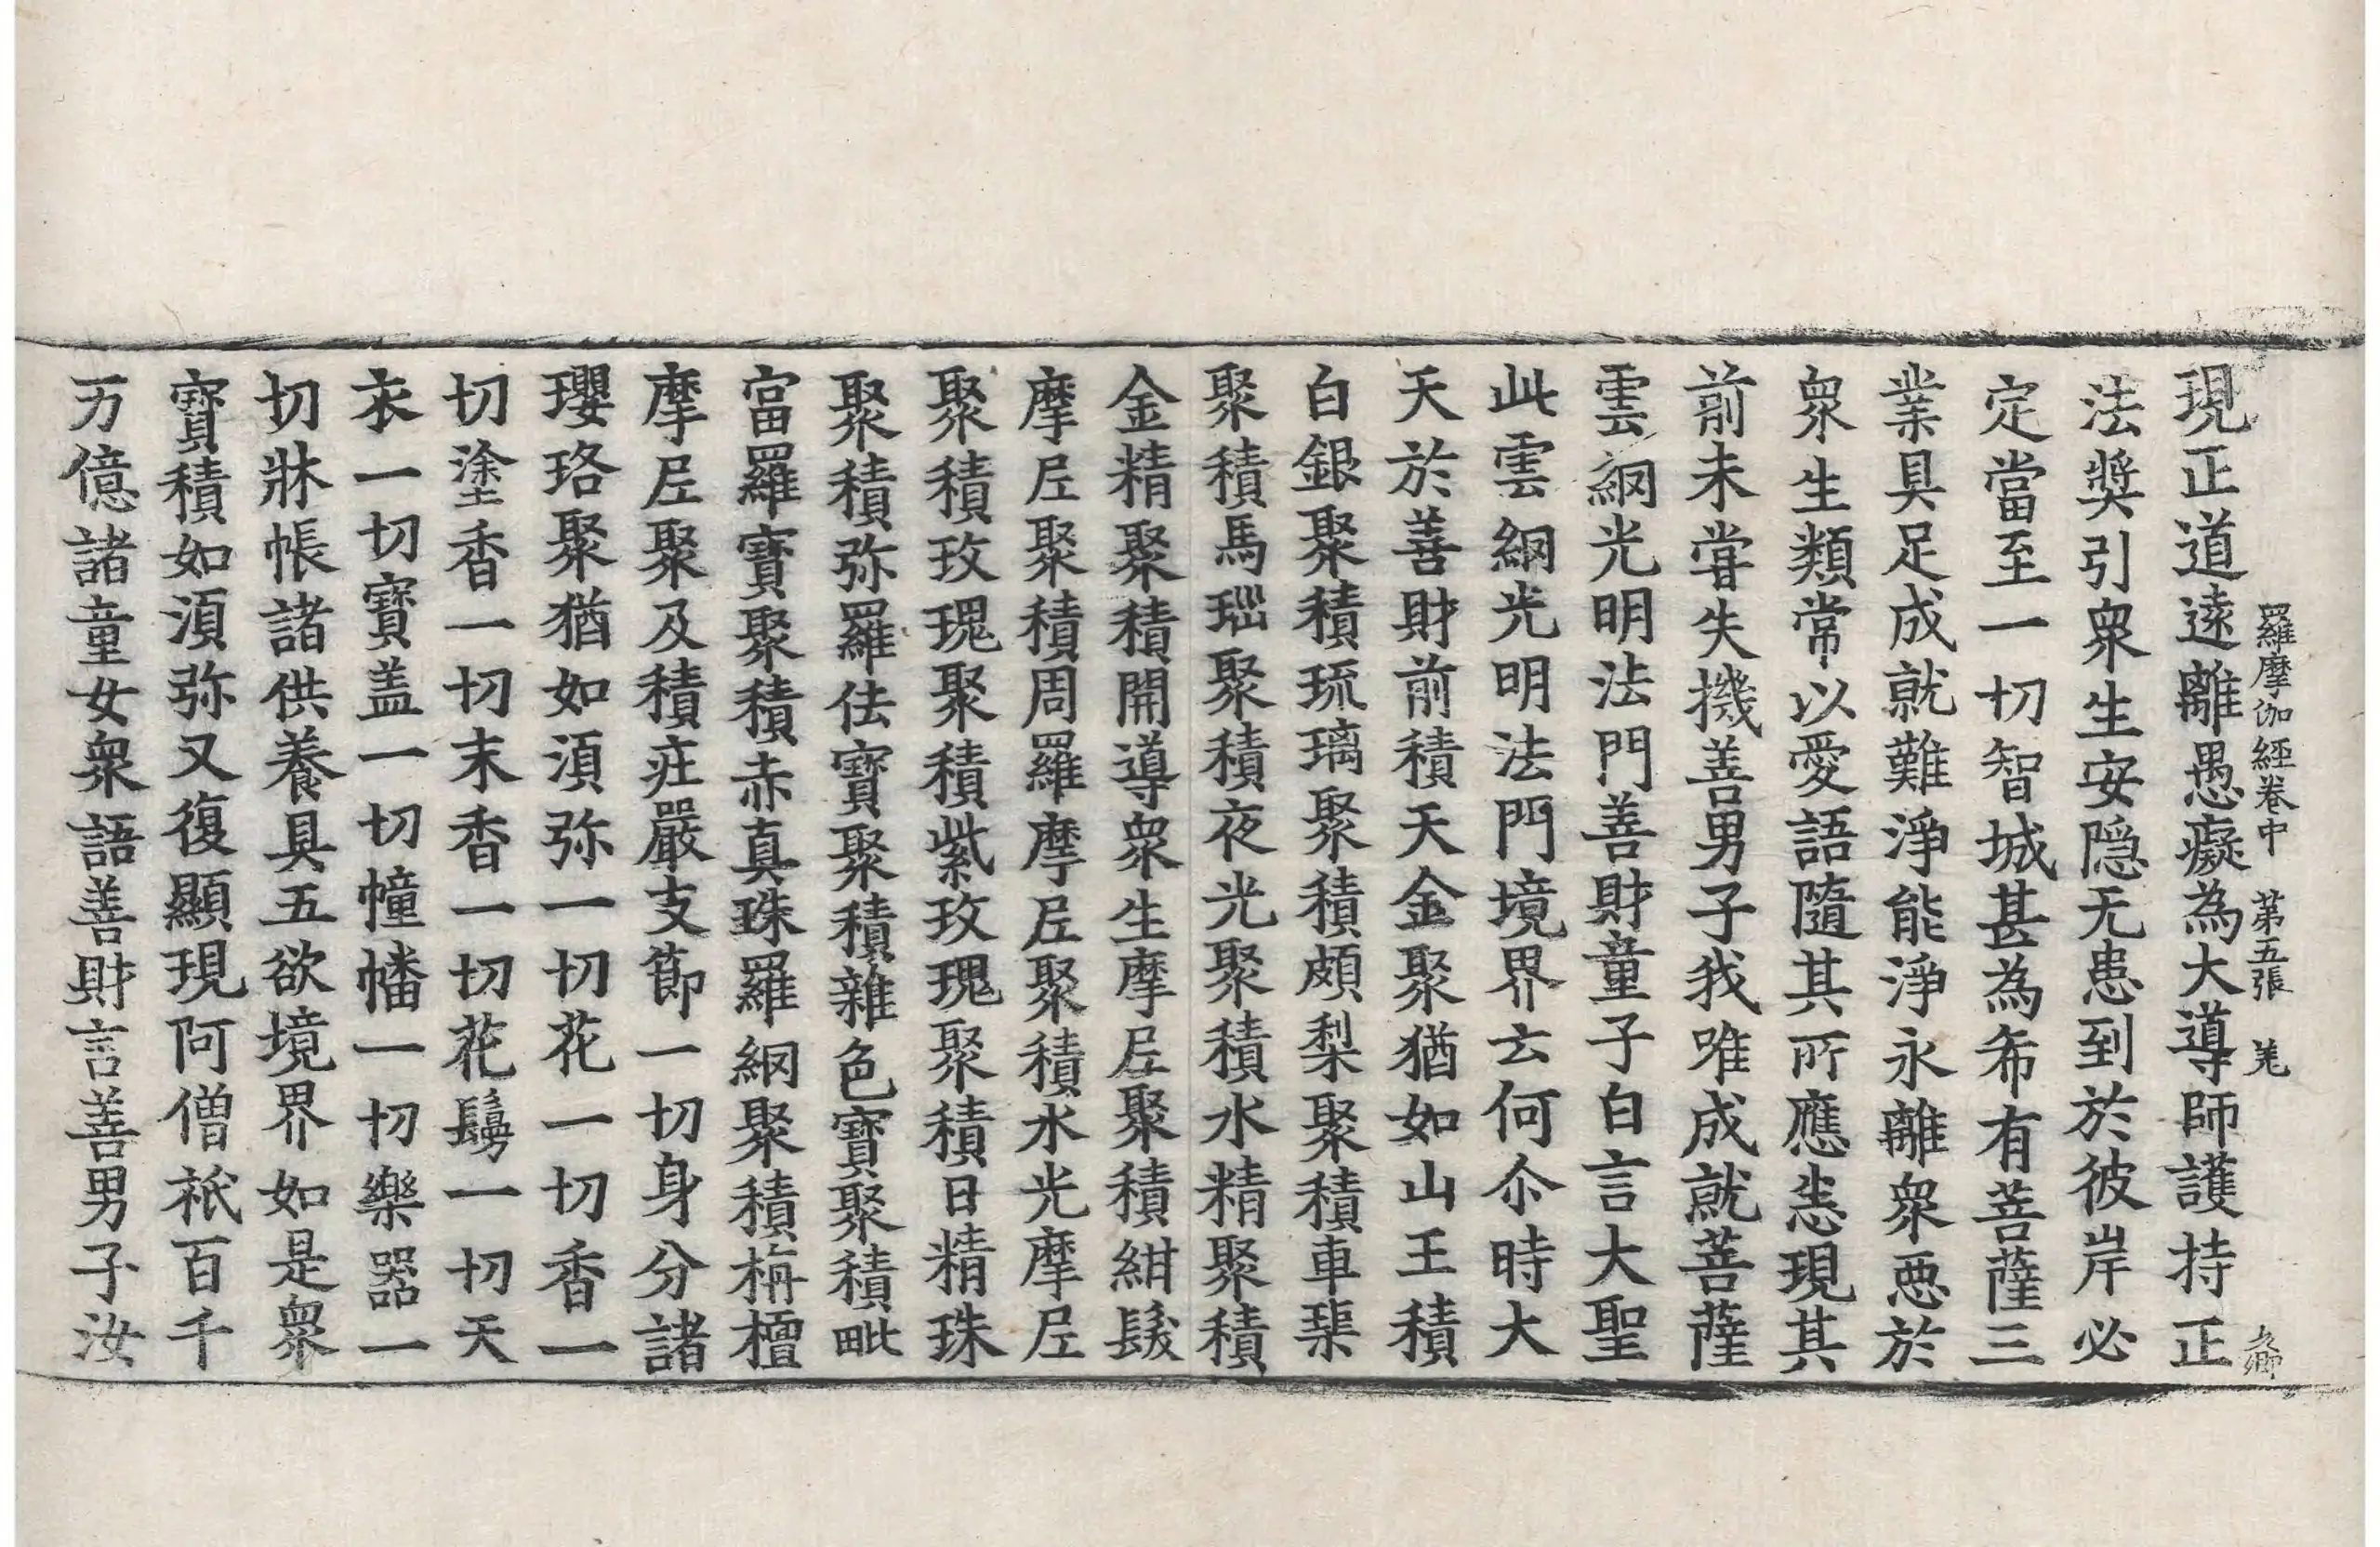 羅摩伽經卷中 第五張 羌
現正道遠離愚癡為大導師護持正
法奬引衆生安隠无患到於彼岸必
定當至一切智城甚為希有菩薩三
業具足成就難淨能淨永離衆惡於
衆生類常以愛語隨其所應悉現其
前未甞失機善男子我唯成就菩薩
雲網光明法門善財童子白言大聖
此雲網光明法門境界云何尒時大
天於善財前積天金聚猶如山王積
白銀聚積琉璃聚積頗梨聚積車𤦲
聚積馬瑙聚積夜光聚積水精聚積
金精聚積開導衆生摩𡰱聚積紺髮
摩𡰱聚積周羅摩𡰱聚積水光摩𡰱
聚積玫瑰聚積紫玫瑰聚積日精珠
聚積弥羅佉寶聚積雜色寶聚積毗
富羅寶聚積赤真珠羅網聚積栴檀
摩𡰱聚及積莊嚴支節一切身分諸
瓔珞聚猶如須弥一切花一切香一
切塗香一切末香一切花鬘一切天
衣一切寶盖一切幢幡一切樂器一
切牀帳諸供養具五欲境界如是衆
寶積如須弥又復顯現阿僧祇百千
万億諸童女衆語善財言善男子汝